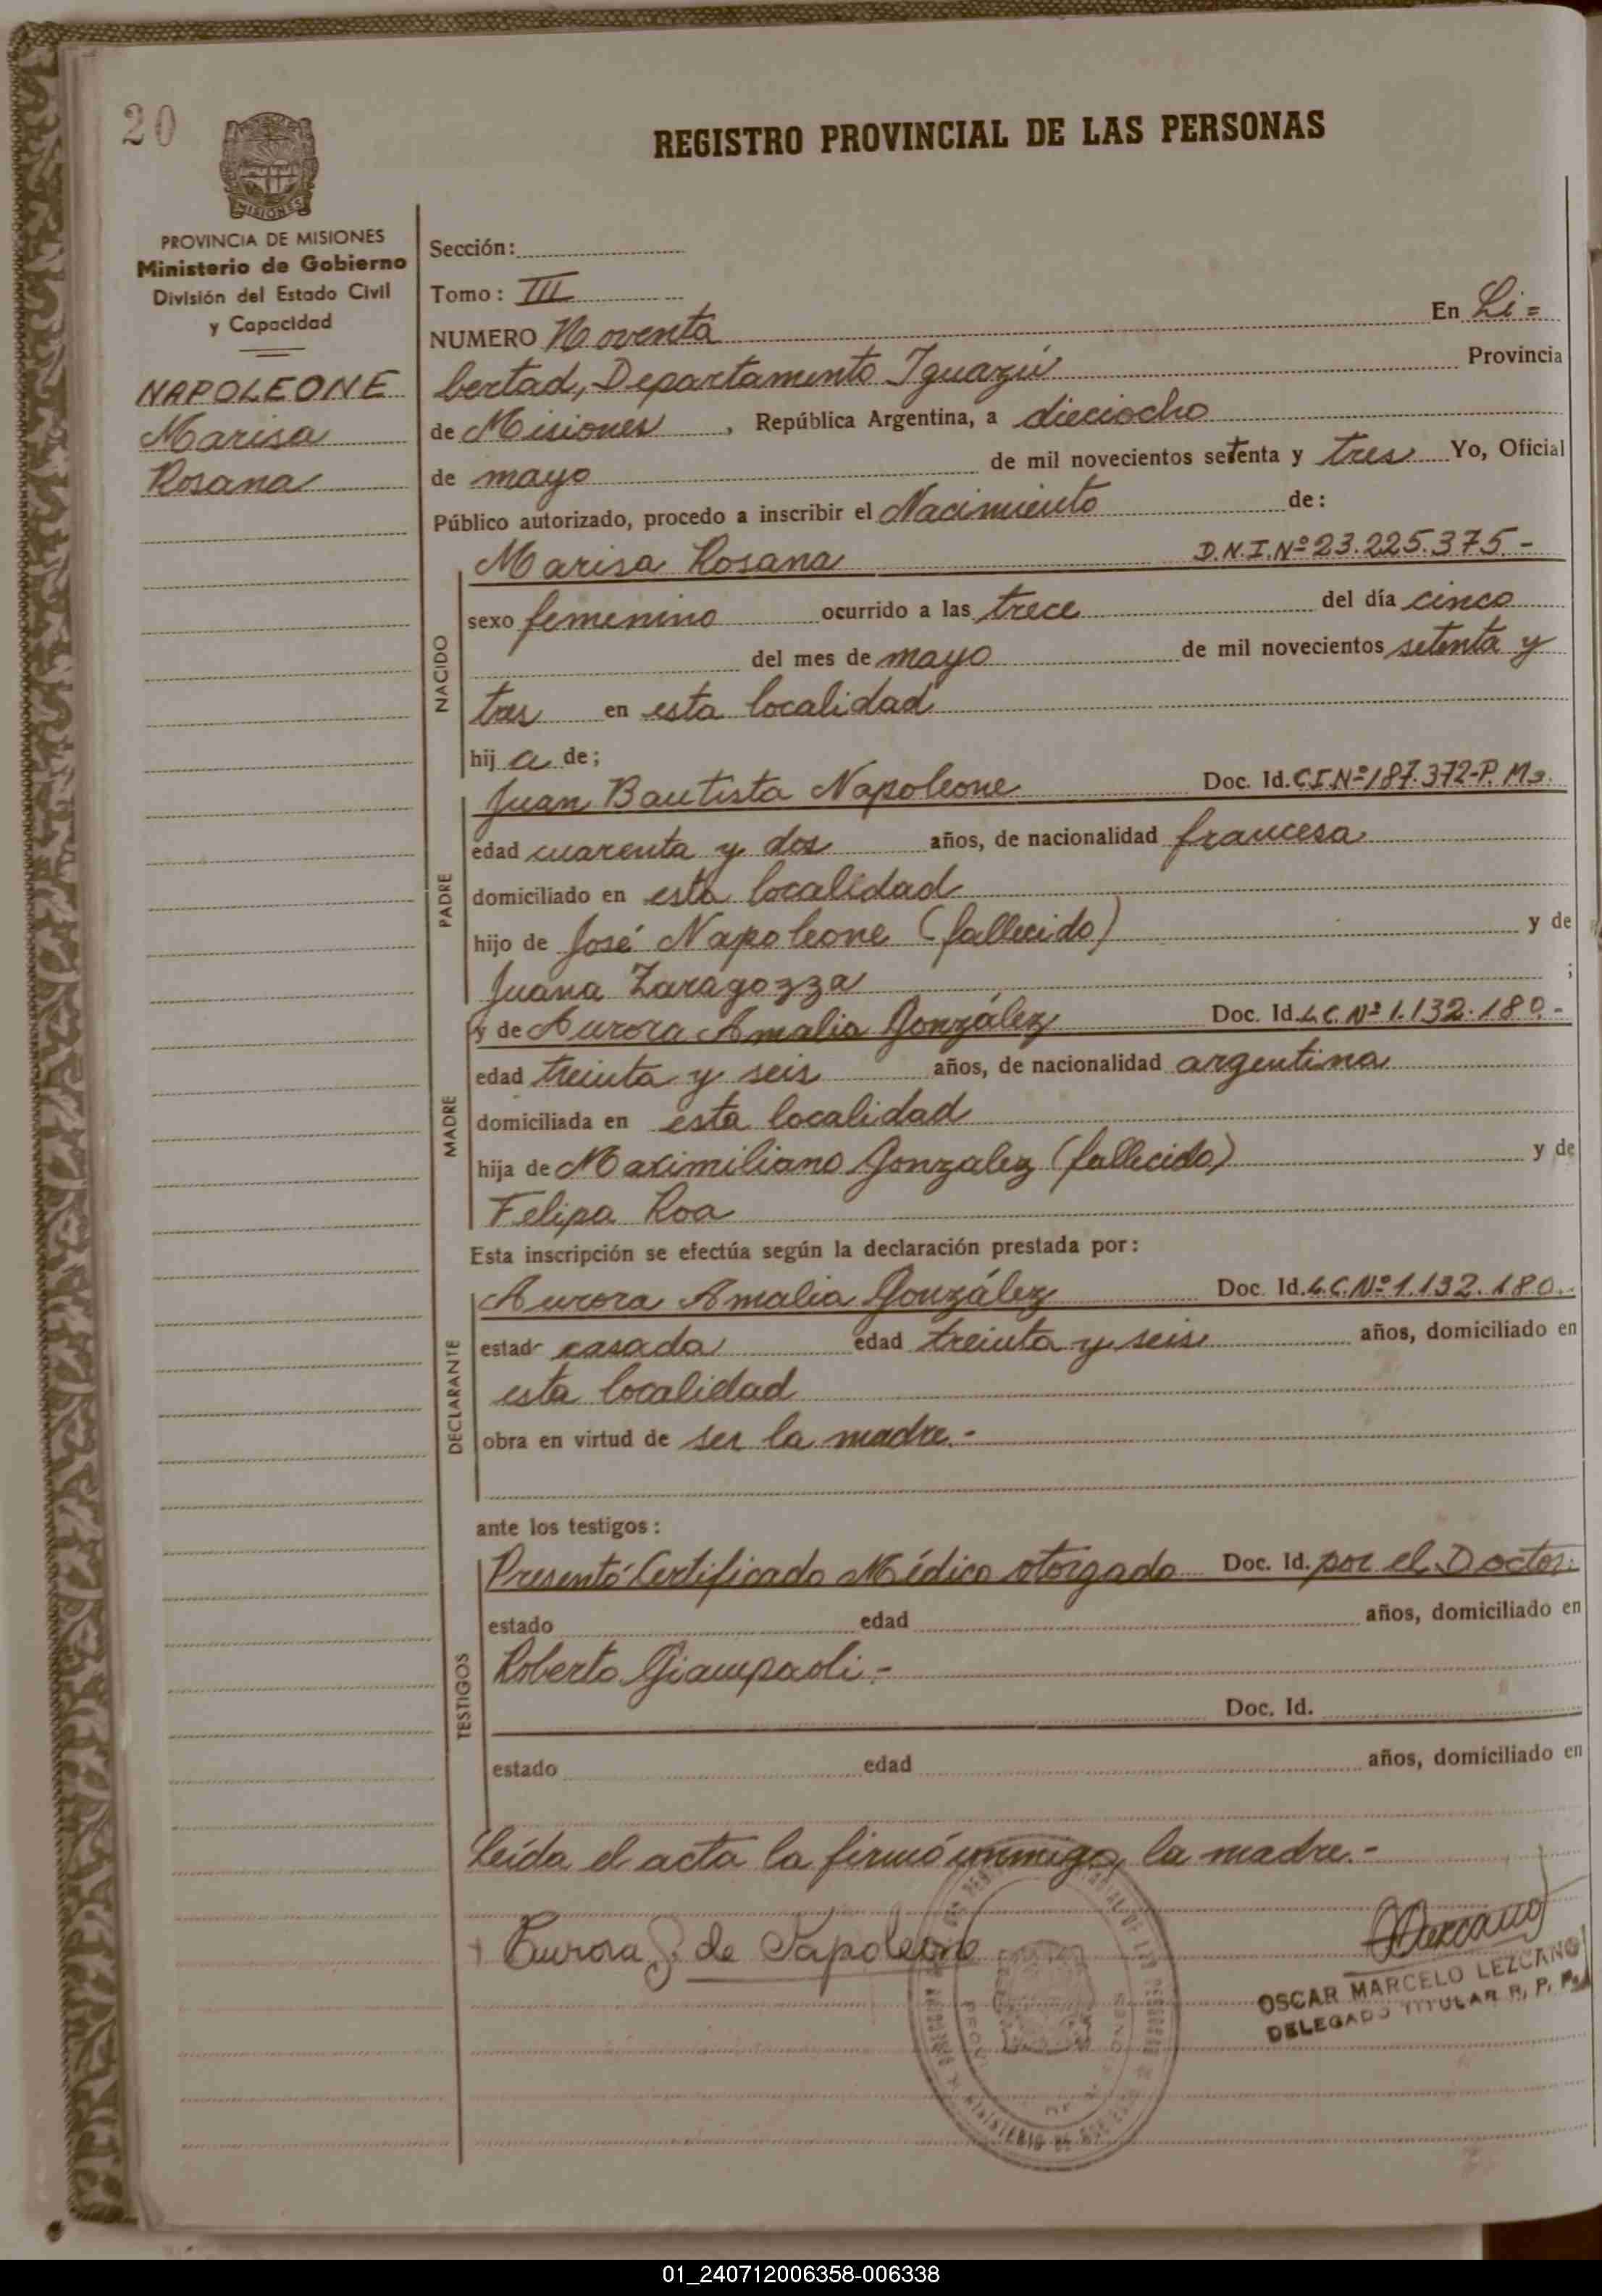 20
MISIONES
PROVINCIA DE MISIONES
Ministerio de Gobierno
División del Estado Civil
y Capacidad
NAPOLEONE
Marisa
Rosana
REGISTRO PROVINCIAL DE LAS PERSONAS
Sección:
Tomo: III
NUMERO Noventa En Li=
bertad, Departamento Iguazú Provincia
de Misiones, República Argentina, a dieciocho
de mayo de mil novecientos setenta y tres Yo, Oficial
Público autorizado, procedo a inscribir el Nacimiento de:
NACIDO
Marisa Rosana D.N.I. Nº 23.225.375.-
sexo femenino ocurrido a las trece del día cinco
del mes de mayo de mil novecientos setenta y
tres en esta localidad
hij a de;
PADRE
Juan Bautista Napoleone Doc. Id. C.I. Nº 187.372-P. Ms.
edad cuarenta y dos años, de nacionalidad francesa
domiciliado en esta localidad
hijo de José Napoleone (fallecido) y de
Juana Zaragozza ;
MADRE
y de Aurora Amalia González Doc. Id. L.C. Nº 1.132.180.-
edad treinta y seis años, de nacionalidad argentina
domiciliada en esta localidad
hija de Maximiliano Gonzalez (fallecido) y de
Felipa Roa
Esta inscripción se efectúa según la declaración prestada por:
DECLARANTE
Aurora Amalia González Doc. Id. L.C. Nº 1.132.180.-
estado casada edad treinta y seis años, domiciliado en
esta localidad
obra en virtud de ser la madre.-
ante los testigos:
TESTIGOS
Presentó Certificado Médico otorgado Doc. Id. por el Doctor:
estado edad años, domiciliado en
Roberto Giampaoli.-
Doc. Id.
estado edad años, domiciliado en
Leída el acta la firmó conmigo, la madre.-
Aurora G. de Napoleone
OSCAR MARCELO LEZCANO
DELEGADO TITULAR R. P. P.
01_240712006358-006338